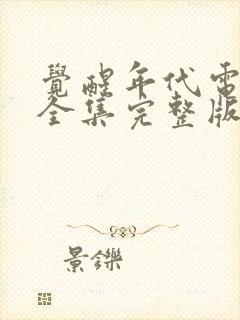 覺醒年代電
全集完整版
景鑠